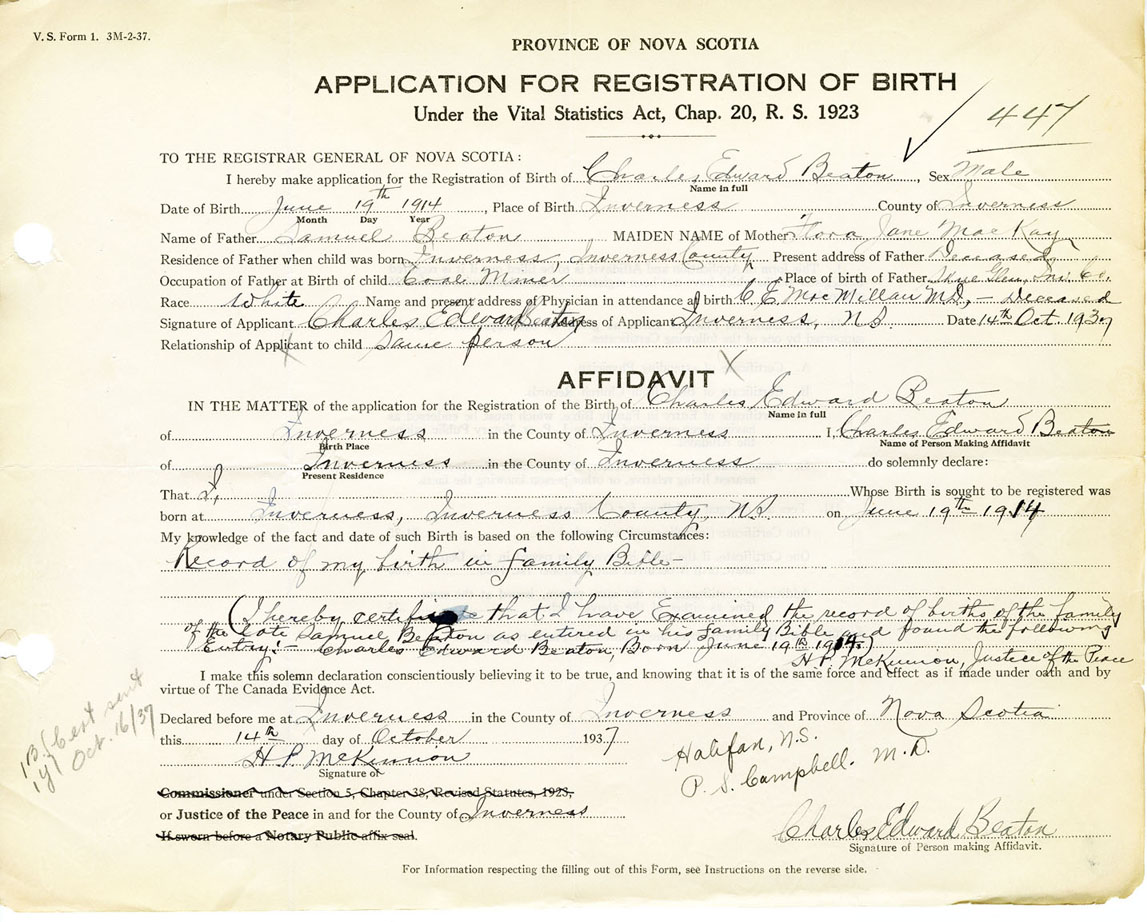 V. S. Form 1. 3M-2-37.
PROVINCE OF NOVA SCOTIA
APPLICATION FOR REGISTRATION OF BIRTH
Under the Vital Statistics Act, Chap. 20, R. S. 1923
447
TO THE REGISTRAR GENERAL OF NOVA SCOTIA:
I hereby make application for the Registration of Birth of Charles Edward Beaton, Sex Male
Name in full
Date of Birth June 19th 1914, Place of Birth Inverness County of Inverness
Month Day Year
Name of Father Samuel Beaton MAIDEN NAME of Mother Flora Jane MacKay
Residence of Father when child was born Inverness, Inverness County Present address of Father Deceased
Occupation of Father at Birth of child Coal Miner Place of birth of Father Skye Glen, Inv. Co.
Race White Name and present address of Physician in attendance at birth C. E. MacMillan M.D. - Deceased
Signature of Applicant Charles Edward Beaton Address of Applicant Inverness, N.S. Date 14th Oct. 1937
Relationship of Applicant to child Same person
AFFIDAVIT
IN THE MATTER of the application for the Registration of the Birth of Charles Edward Beaton
Name in full
of Inverness in the County of Inverness I, Charles Edward Beaton
Birth Place Name of Person Making Affidavit
of Inverness in the County of Inverness do solemnly declare:
Present Residence
That I, Whose Birth is sought to be registered was
born at Inverness, Inverness County, N.S. on June 19th 1914
My knowledge of the fact and date of such Birth is based on the following Circumstances:
Record of my birth in family Bible-
(I hereby certify that I have Examined the record of births of the family
of the late Samuel Beaton as entered in his family Bible and found the following
Entry:- Charles Edward Beaton, Born June 19th 1914.)
H. P. McKinnon, Justice of the Peace
I make this solemn declaration conscientiously believing it to be true, and knowing that it is of the same force and effect as if made under oath and by
virtue of The Canada Evidence Act.
Declared before me at Inverness in the County of Inverness and Province of Nova Scotia
this 14th day of October 1937
H. P. McKinnon
Signature of
Halifax, N.S.
P. S. Campbell. M.D.
Commissioner under Section 5, Chapter 38, Revised Statutes, 1923,
or Justice of the Peace in and for the County of Inverness
If sworn before a Notary Public affix seal.
Charles Edward Beaton
Signature of Person making Affidavit.
For Information respecting the filling out of this Form, see Instructions on the reverse side.
cert sent
Oct. 16/37